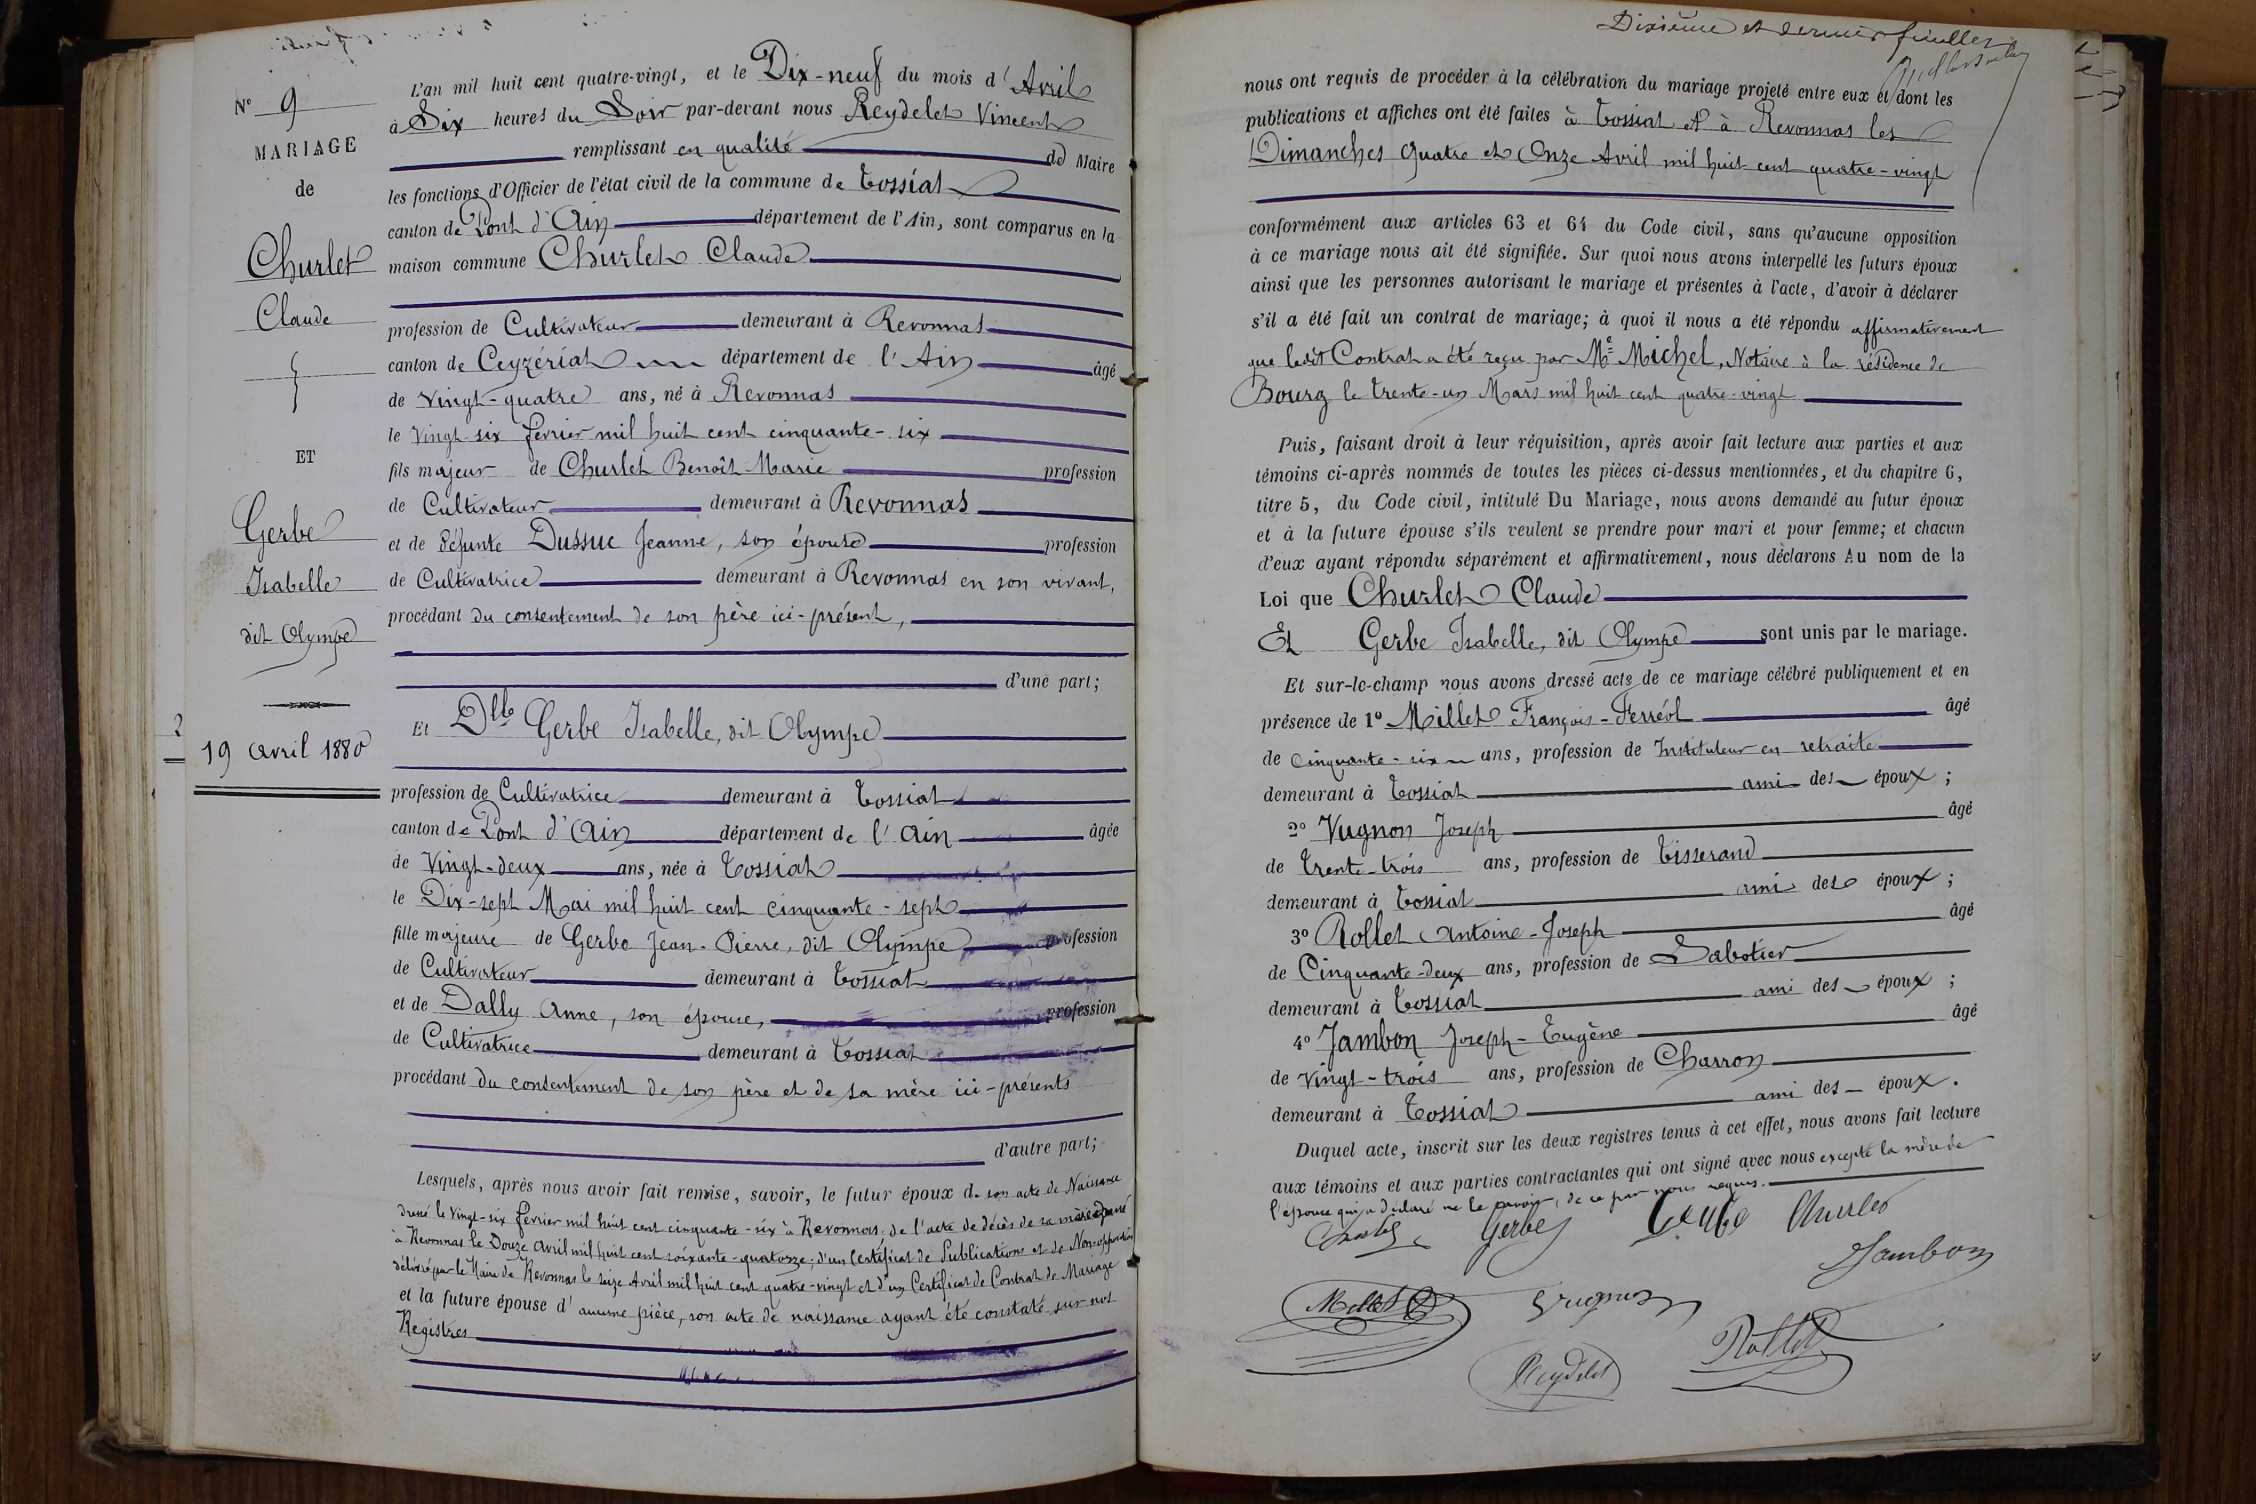 N° 9
MARIAGE
de
Churlet
Claude
ET
Gerbe
Isabelle
dit Olympe
19 Avril 1880
L'an mil huit cent quatre-vingt, et le Dix-neuf du mois d'Avril
à Six heures du Soir par-devant nous Reydelet Vincent
remplissant en qualité de Maire
les fonctions d'Officier de l'état civil de la commune de Tossiat
canton de Pont d'Ain département de l'Ain, sont comparus en la
maison commune Churlet Claude
profession de Cultivateur demeurant à Revonnas
canton de Ceyzériat département de l'Ain âgé
de Vingt-quatre ans, né à Revonnas
le Vingt-six février mil huit cent cinquante-six
fils majeur de Churlet Benoît-Marie profession
de Cultivateur demeurant à Revonnas
et de défunte Dussuc Jeanne, son épouse profession
de Cultivatrice demeurant à Revonnas en son vivant,
procédant du consentement de son père ici-présent,
d'une part;
Et Dlle Gerbe Isabelle, dit Olympe
profession de Cultivatrice demeurant à Tossiat
canton de Pont d'Ain département de l'Ain âgée
de Vingt-deux ans, née à Tossiat
le Dix-sept Mai mil huit cent cinquante-sept
fille majeure de Gerbe Jean-Pierre, dit Olympe profession
de Cultivateur demeurant à Tossiat
et de Dally Anne, son épouse, profession
de Cultivatrice demeurant à Tossiat
procédant du consentement de son père et de sa mère ici-présents
d'autre part;
Lesquels, après nous avoir fait remise, savoir, le futur époux de son acte de Naissance
dressé le Vingt-six février mil huit cent cinquante-six à Revonnas; de l'acte de décès de sa mère dressé
à Revonnas le Douze Avril mil huit cent soixante-quatorze; d'un Certificat de Publications et de Non-opposition
délivré par le Maire de Revonnas le seize Avril mil huit cent quatre-vingt et d'un Certificat de Contrat de Mariage
et la future épouse d'aucune pièce, son acte de naissance ayant été constaté sur nos
Registres
Dixième et dernier feuillet
nous ont requis de procéder à la célébration du mariage projeté entre eux et dont les
publications et affiches ont été faites à Tossiat et à Revonnas les
Dimanches Quatre et Onze Avril mil huit cent quatre-vingt
conformément aux articles 63 et 64 du Code civil, sans qu'aucune opposition
à ce mariage nous ait été signifiée. Sur quoi nous avons interpellé les futurs époux
ainsi que les personnes autorisant le mariage et présentes à l'acte, d'avoir à déclarer
s'il a été fait un contrat de mariage; à quoi il nous a été répondu affirmativement
que ledit Contrat a été reçu par Me Michel, Notaire à la résidence de
Bourg le trente-un Mars mil huit cent quatre-vingt
Puis, faisant droit à leur réquisition, après avoir fait lecture aux parties et aux
témoins ci-après nommés de toutes les pièces ci-dessus mentionnées, et du chapitre 6,
titre 5, du Code civil, intitulé Du Mariage, nous avons demandé au futur époux
et à la future épouse s'ils veulent se prendre pour mari et pour femme; et chacun
d'eux ayant répondu séparément et affirmativement, nous déclarons Au nom de la
Loi que Churlet Claude
Et Gerbe Isabelle, dit Olympe sont unis par le mariage.
Et sur-le-champ nous avons dressé acte de ce mariage célébré publiquement et en
présence de 1° Millet François-Ferréol âgé
de Cinquante-six ans, profession de Instituteur en retraite
demeurant à Tossiat ami des époux;
2° Vugnon Joseph âgé
de trente-trois ans, profession de Tisserand
demeurant à Tossiat ami des époux;
3° Rollet Antoine-Joseph âgé
de Cinquante-deux ans, profession de Sabotier
demeurant à Tossiat ami des époux;
4° Jambon Joseph-Eugène âgé
de Vingt-trois ans, profession de Charron
demeurant à Tossiat ami des époux.
Duquel acte, inscrit sur les deux registres tenus à cet effet, nous avons fait lecture
aux témoins et aux parties contractantes qui ont signé avec nous excepté la mère de
l'épouse qui a déclaré ne le savoir, de ce par nous requis.
Churlet Gerbe Gerbe Churlet
Jambon
Millet Vugnon
Rollet
Reydelet